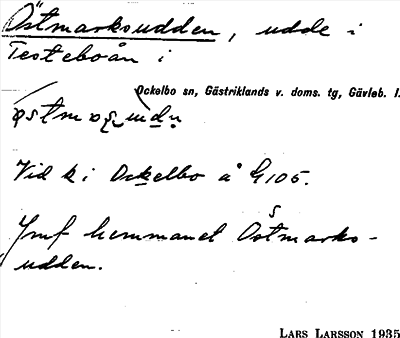 Östmarksudden, udde i
Testeboån i
Ockelbo sn, Gästriklands v. doms. tg, Gävleb. l.
Vid k i Ockelbo å G105.
Jmf hemmanet Östmarks-
udden.
LARS LARSSON 1935